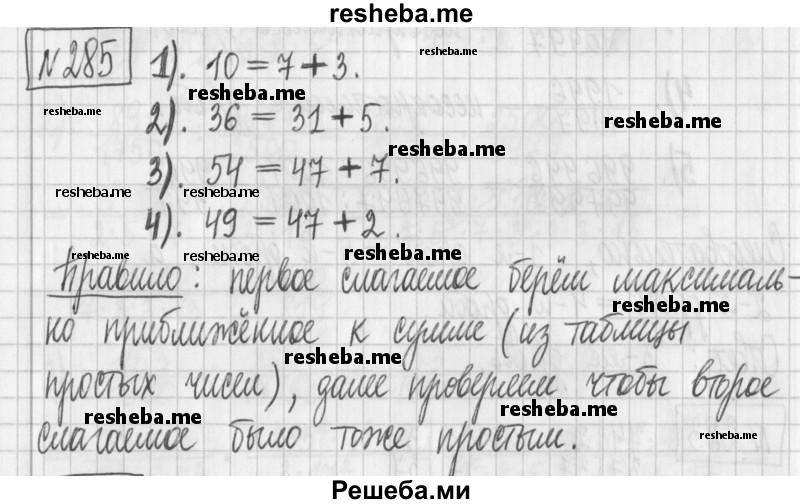 resheba.me
№285 1). 10 = 7 + 3. resheba.me
resheba.me
resheba.me 2). 36 = 31 + 5. resheba.me
resheba.me
3). 54 = 47 + 7.
resheba.me resheba.me
4). 49 = 47 + 2.
resheba.me resheba.me resheba.me
Правило: первое слагаемое берём максималь-
resheba.me
но приближённое к сумме (из таблицы
resheba.me
простых чисел), далее проверяем чтобы второе
resheba.me resheba.me
слагаемое было тоже простым. resheba.me
Решеба.ми